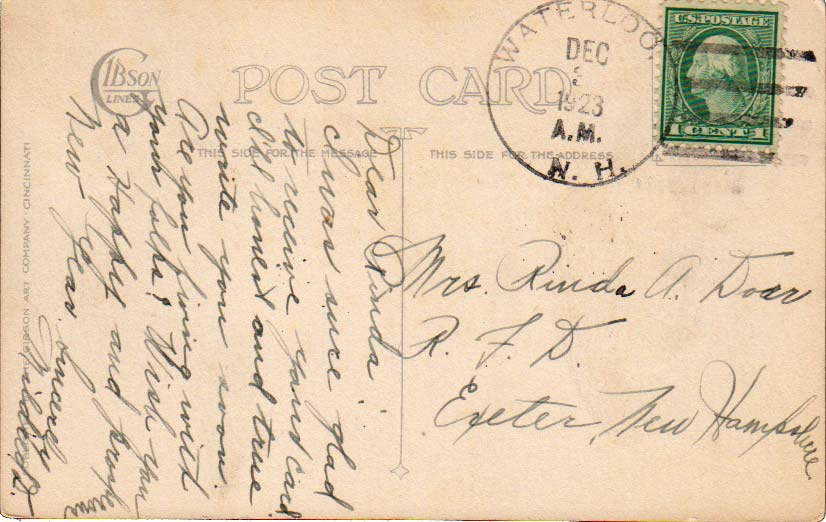 GIBSON
LINES
POST CARD
THIS SIDE FOR THE MESSAGE
THIS SIDE FOR THE ADDRESS
WATERLOO,
DEC
1923
A.M.
N. H.
U.S. POSTAGE
1 CENT 1
Dear Rinda
I was sure glad
to receive your card
I'll honest and true
write you soon
Are you living with
your folks? Wish you
a Happy and prosperous
New Year. Sincerely
Mildred D.
Mrs. Rinda A. Doar
R. F. D.
Exeter, New Hampshire.
THE GIBSON ART COMPANY, CINCINNATI